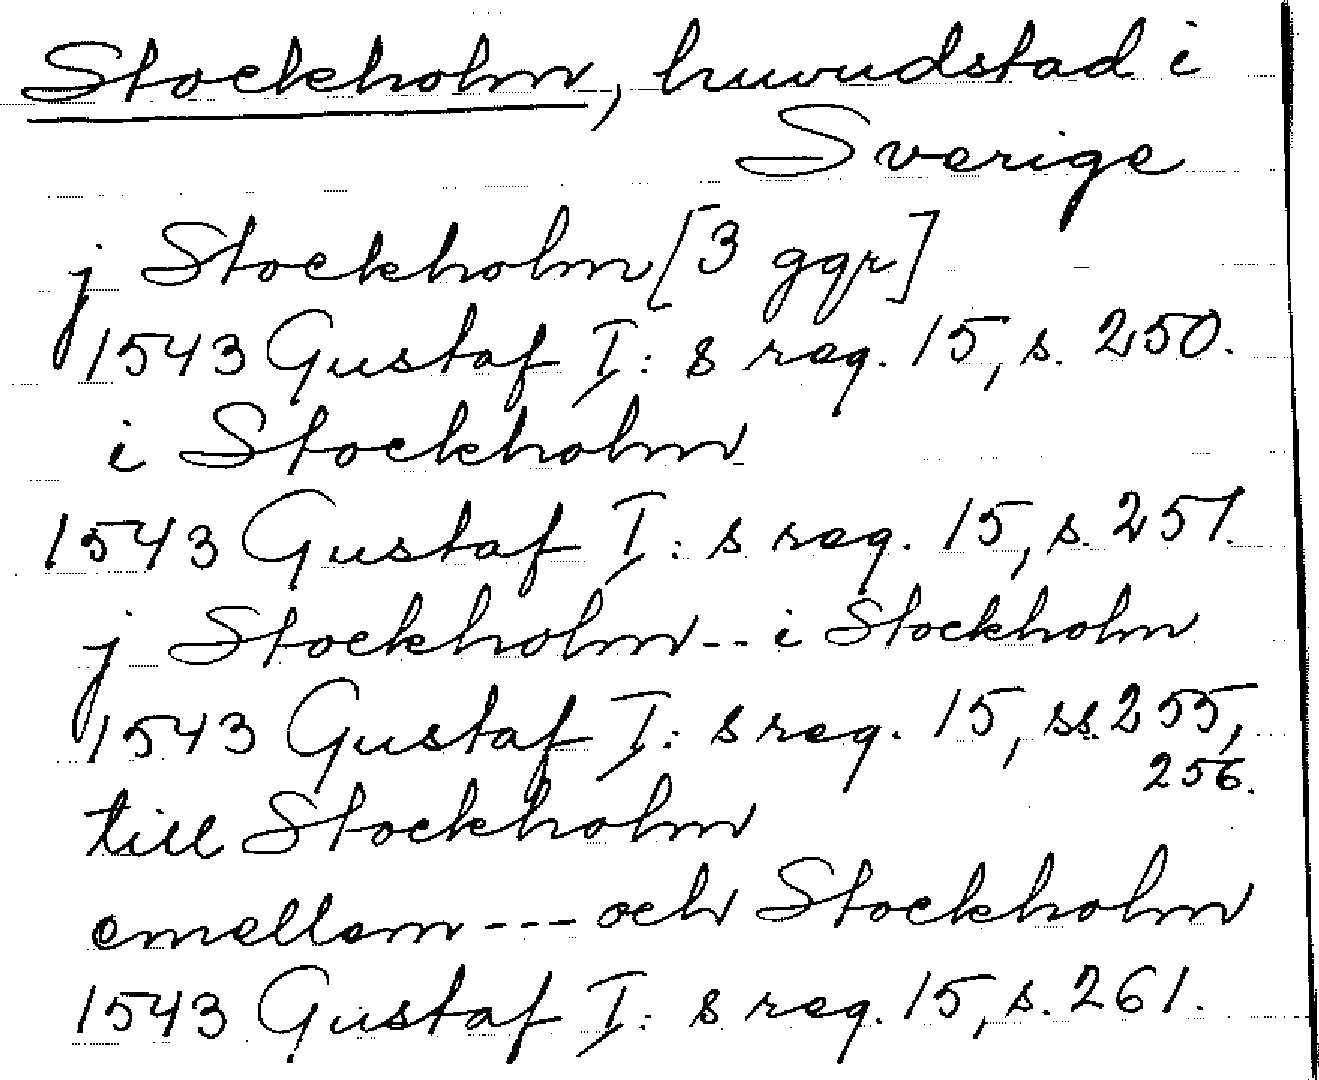 Stockholm, huvudstad i
Sverige
j Stockholm [3 ggr]
1543 Gustaf I: s reg. 15, s. 250.
i Stockholm
1543 Gustaf I: s reg. 15, s. 251.
j Stockholm -- i Stockholm
1543 Gustaf I: s reg. 15, ss. 255,
256.
till Stockholm
emellem --- och Stockholm
1543 Gustaf I: s reg. 15, s. 261.